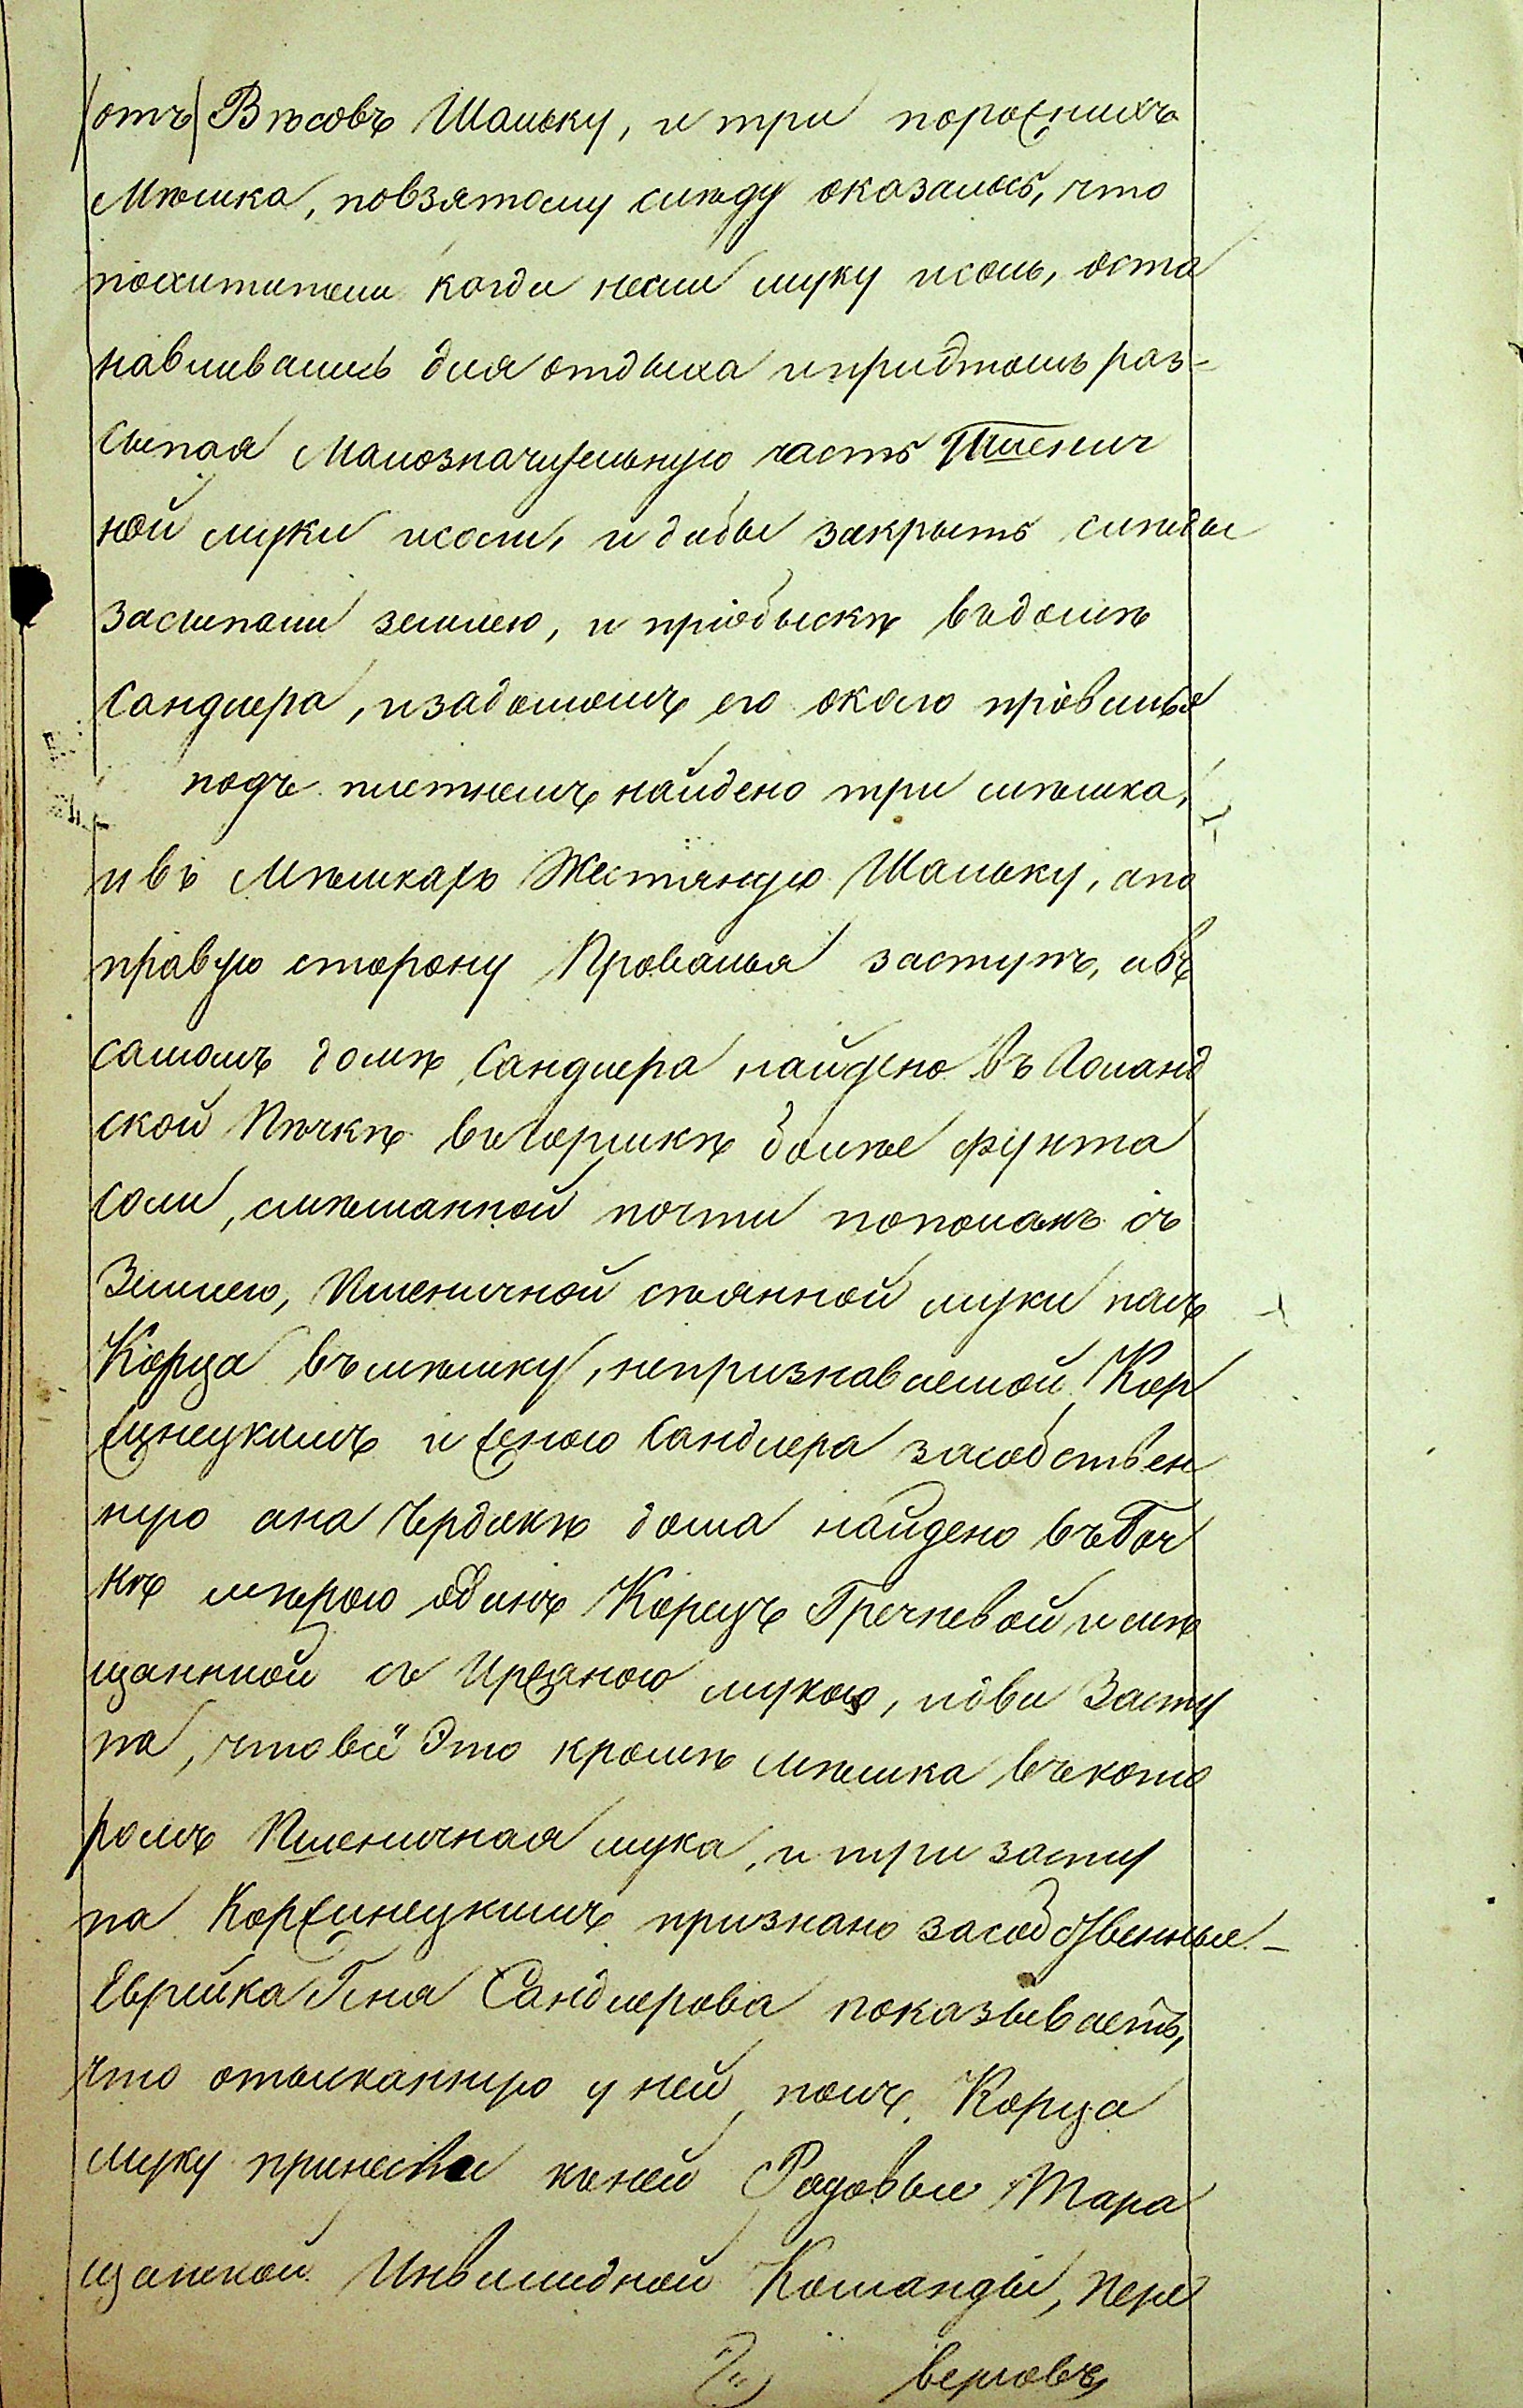 отъ Вѣсовъ Шальку, и три порожнихъ
Мѣшка, повзятому слѣду оказалось, что
похитители когда несли муку исоль, оста
навливались для отдыха ипридтомъ раз-
сыпая Малозначительную часть Пшенич
ной муки исоли, и дабы закрыть слѣды
засыпали землею, и приобыскѣ въдомѣ
Сандлера, изадомомъ его около провалья
подъ плетнемъ найдено три мѣшка,
ивъ Мѣшкахъ Жестяную Шальку, апо
правую сторону Провалья заступъ, авъ
самомъ домѣ Сандлера найдено въ Голанд
ской Печкѣ въгоршкѣ болѣе фунта
соли, смѣшанной почти пополамъ съ
Землею, Пшеничной сѣянной муки полъ
Корца въмѣшку, непризнаваемой Кор
жинецкимъ и женою Сандлера засобствен
ную ана Чердакѣ дома найдено въ Боч
кѣ мѣрою одинъ Корецъ Гречневой исмѣ
щанной съ Иржаною мукою, идва Засту
па, чтовсё Это кромѣ мѣшка въкото
ромъ Пшеничная мука, и три засту
па Коржинецкимъ признано засобственные -
Еврейка Геня Сандлерова показываетъ,
что отысканную у ней полъ Корца
муку принесли кней Рядовые Тара
щанской Инвалидной Команды, Пере
верговъ